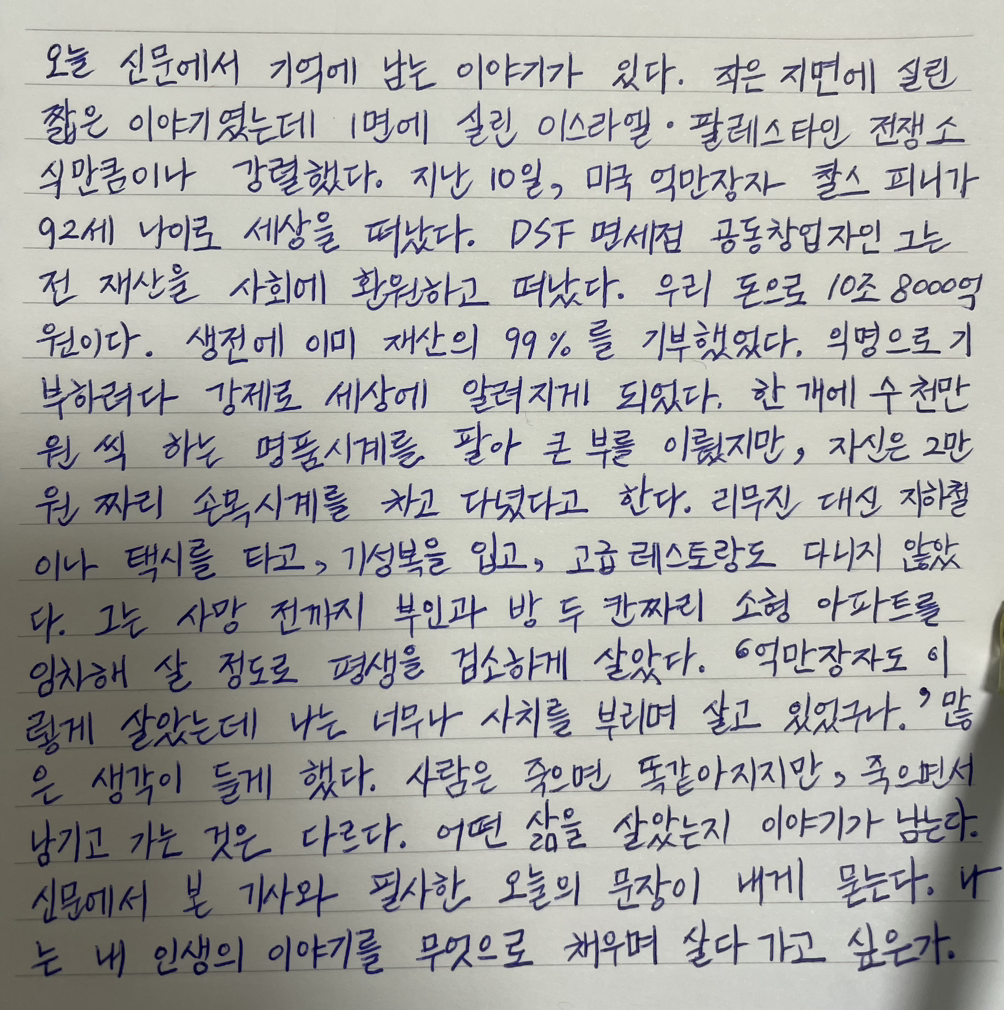 오늘 신문에서 기억에 남는 이야기가 있다. 작은 지면에 실린
짧은 이야기였는데 1면에 실린 이스라엘·팔레스타인 전쟁 소
식만큼이나 강렬했다. 지난 10일, 미국 억만장자 찰스 피니가
92세 나이로 세상을 떠났다. DSF 면세점 공동창업자인 그는
전 재산을 사회에 환원하고 떠났다. 우리 돈으로 10조 8000억
원이다. 생전에 이미 재산의 99%를 기부했었다. 익명으로 기
부하려다 강제로 세상에 알려지게 되었다. 한 개에 수 천만
원 씩 하는 명품시계를 팔아 큰 부를 이뤘지만, 자신은 2만
원 짜리 손목시계를 차고 다녔다고 한다. 리무진 대신 지하철
이나 택시를 타고, 기성복을 입고, 고급 레스토랑도 다니지 않았
다. 그는 사망 전까지 부인과 방 두 칸짜리 소형 아파트를
임차해 살 정도로 평생을 검소하게 살았다. ‘억만장자도 이
렇게 살았는데 나는 너무나 사치를 부리며 살고 있었구나.’ 많
은 생각이 들게 했다. 사람은 죽으면 똑같아지지만, 죽으면서
남기고 가는 것은 다르다. 어떤 삶을 살았는지 이야기가 남는다.
신문에서 본 기사와 필사한 오늘의 문장이 내게 묻는다. 나
는 내 인생의 이야기를 무엇으로 채우며 살다 가고 싶은가.